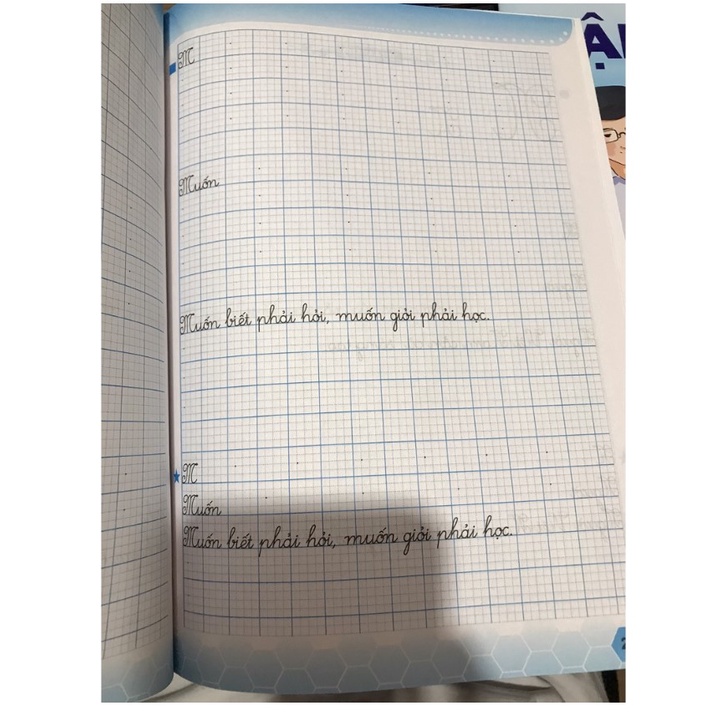 M
Muốn
Muốn biết phải hỏi, muốn giỏi phải học.
M
Muốn
Muốn biết phải hỏi, muốn giỏi phải học.